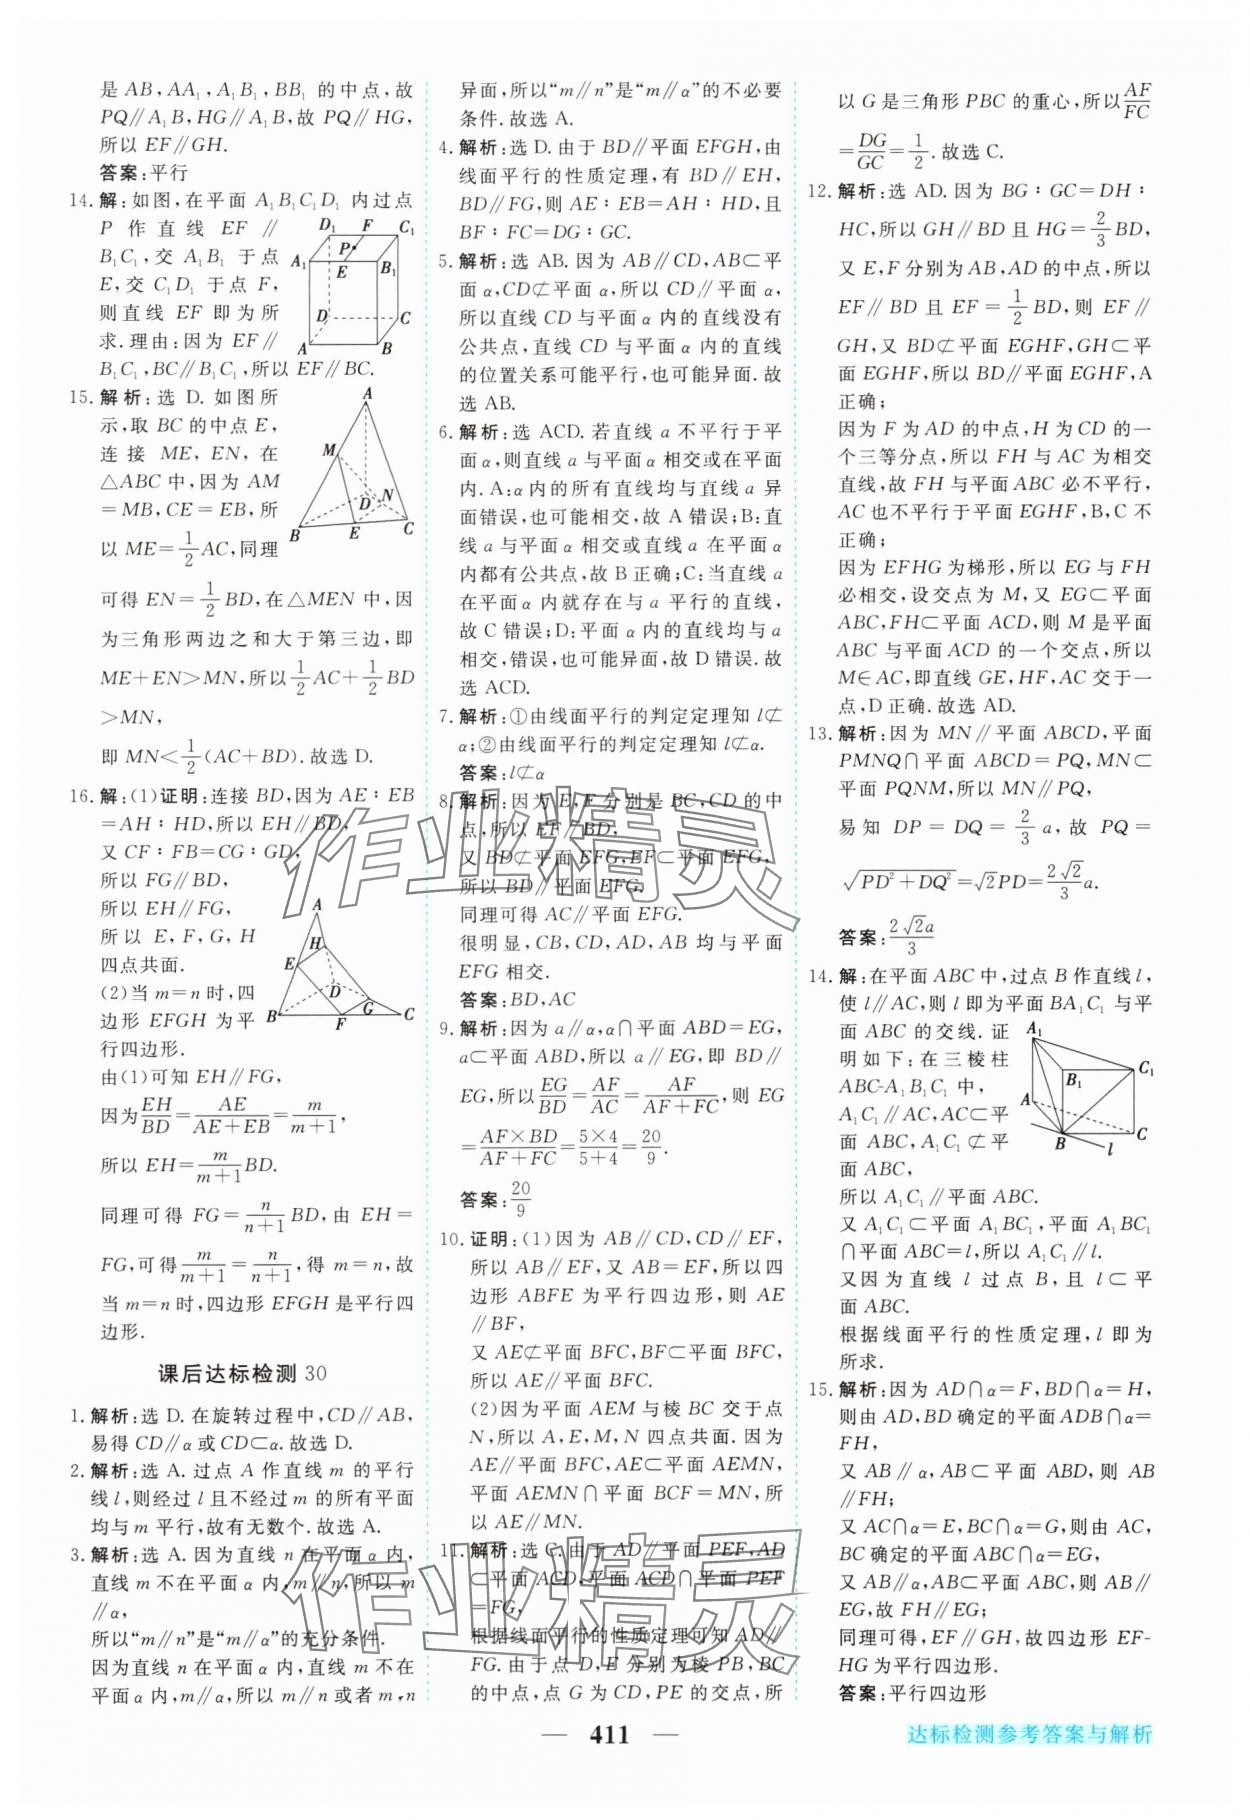 是 AB,AA₁,A₁B₁,BB₁ 的中点,故
PQ∥A₁B,HG∥A₁B,故 PQ∥HG,
所以 EF∥GH.
答案:平行
14.解:如图,在平面 A₁B₁C₁D₁ 内过点
P 作直线 EF∥
B₁C₁,交 A₁B₁ 于点
E,交 C₁D₁ 于点 F,
则直线 EF 即为所
求.理由:因为 EF∥
B₁C₁,BC∥B₁C₁,所以 EF∥BC.
D₁ F C₁
P
A₁ E B₁
D C
A B
15.解析:选 D.如图所
示,取 BC 的中点 E,
连接 ME,EN,在
△ABC 中,因为 AM
=MB,CE=EB,所
以 ME=1/2AC,同理
可得 EN=1/2BD,在△MEN 中,因
为三角形两边之和大于第三边,即
ME+EN>MN,所以1/2AC+1/2BD
>MN,
即 MN<1/2(AC+BD).故选 D.
A
M
D N
B E C
16.解:(1)证明:连接 BD,因为 AE∶EB
=AH∶HD,所以 EH∥BD,
又 CF∶FB=CG∶GD,
所以 FG∥BD,
所以 EH∥FG,
所以 E,F,G,H
四点共面.
(2)当 m=n 时,四
边形 EFGH 为平
行四边形.
由(1)可知 EH∥FG,
因为EH/BD=AE/(AE+EB)=m/(m+1),
所以 EH=m/(m+1)BD.
同理可得 FG=n/(n+1)BD,由 EH=
FG,可得m/(m+1)=n/(n+1),得 m=n,故
当 m=n 时,四边形 EFGH 是平行四
边形.
A
H
E
D
B F G C
课后达标检测 30
1.解析:选 D.在旋转过程中,CD∥AB,
易得 CD∥α或 CD⊂α.故选 D.
2.解析:选 A.过点 A 作直线 m 的平行
线 l,则经过 l 且不经过 m 的所有平面
均与 m 平行,故有无数个.故选 A.
3.解析:选 A.因为直线 n 在平面 α 内,
直线 m 不在平面 α 内,m∥n,所以 m
∥α,
所以“m∥n”是“m∥α”的充分条件.
因为直线 n 在平面 α 内,直线 m 不在
平面 α 内,m∥α,所以 m∥n 或者 m,n
异面,所以“m∥n”是“m∥α”的不必要
条件.故选 A.
4.解析:选 D.由于 BD∥平面 EFGH,由
线面平行的性质定理,有 BD∥EH,
BD∥FG,则 AE∶EB=AH∶HD,且
BF∶FC=DG∶GC.
5.解析:选 AB.因为 AB∥CD,AB⊂平
面 α,CD⊄平面 α,所以 CD∥平面 α,
所以直线 CD 与平面 α 内的直线没有
公共点,直线 CD 与平面 α 内的直线
的位置关系可能平行,也可能异面.故
选 AB.
6.解析:选 ACD.若直线 a 不平行于平
面 α,则直线 a 与平面 α 相交或在平面
内.A:α 内的所有直线均与直线 a 异
面错误,也可能相交,故 A 错误;B:直
线 a 与平面 α 相交或直线 a 在平面 α
内都有公共点,故 B 正确;C:当直线 a
在平面 α 内就存在与 a 平行的直线,
故 C 错误;D:平面 α 内的直线均与 a
相交,错误,也可能异面,故 D 错误.故
选 ACD.
7.解析:①由线面平行的判定定理知 l⊄
α;②由线面平行的判定定理知 l⊄α.
答案:l⊄α
8.解析:因为 E,F 分别是 BC,CD 的中
点,所以 EF∥BD,
又 BD⊄平面 EFG,EF⊂平面 EFG,
所以 BD∥平面 EFG.
同理可得 AC∥平面 EFG.
很明显,CB,CD,AD,AB 均与平面
EFG 相交.
答案:BD,AC
9.解析:因为 a∥α,α∩平面 ABD=EG,
a⊂平面 ABD,所以 a∥EG,即 BD∥
EG,所以EG/BD=AF/AC=AF/(AF+FC),则 EG
=(AF×BD)/(AF+FC)=(5×4)/(5+4)=20/9.
答案:20/9
10.证明:(1)因为 AB∥CD,CD∥EF,
所以 AB∥EF,又 AB=EF,所以四
边形 ABFE 为平行四边形,则 AE
∥BF,
又 AE⊄平面 BFC,BF⊂平面 BFC,
所以 AE∥平面 BFC.
(2)因为平面 AEM 与棱 BC 交于点
N,所以 A,E,M,N 四点共面.因为
AE∥平面 BFC,AE⊂平面 AEMN,
平面 AEMN∩平面 BCF=MN,所
以 AE∥MN.
11.解析:选 C.由于 AD∥平面 PEF,AD
⊂平面 ACD,平面 ACD∩平面 PEF
=FG,
根据线面平行的性质定理可知 AD∥
FG.由于点 D,E 分别为棱 PB,BC
的中点,点 G 为 CD,PE 的交点,所
以 G 是三角形 PBC 的重心,所以AF/FC
=DG/GC=1/2.故选 C.
12.解析:选 AD.因为 BG∶GC=DH∶
HC,所以 GH∥BD 且 HG=2/3BD,
又 E,F 分别为 AB,AD 的中点,所以
EF∥BD 且 EF=1/2BD,则 EF∥
GH,又 BD⊄平面 EGHF,GH⊂平
面 EGHF,所以 BD∥平面 EGHF,A
正确;
因为 F 为 AD 的中点,H 为 CD 的一
个三等分点,所以 FH 与 AC 为相交
直线,故 FH 与平面 ABC 必不平行,
AC 也不平行于平面 EGHF,B,C 不
正确;
因为 EFHG 为梯形,所以 EG 与 FH
必相交,设交点为 M,又 EG⊂平面
ABC,FH⊂平面 ACD,则 M 是平面
ABC 与平面 ACD 的一个交点,所以
M∈AC,即直线 GE,HF,AC 交于一
点,D 正确.故选 AD.
13.解析:因为 MN∥平面 ABCD,平面
PMNQ∩平面 ABCD=PQ,MN⊂
平面 PQNM,所以 MN∥PQ,
易知 DP=DQ=2/3a,故 PQ=
√(PD²+DQ²)=√2PD=2√2/3a.
答案:2√2a/3
14.解:在平面 ABC 中,过点 B 作直线 l,
使 l∥AC,则 l 即为平面 BA₁C₁ 与平
面 ABC 的交线.证
明如下:在三棱柱
ABC-A₁B₁C₁ 中,
A₁C₁∥AC,AC⊂平
面 ABC,A₁C₁⊄平
面 ABC,
所以 A₁C₁∥平面 ABC.
又 A₁C₁⊂平面 A₁BC₁,平面 A₁BC₁
∩平面 ABC=l,所以 A₁C₁∥l.
又因为直线 l 过点 B,且 l⊂平
面 ABC.
根据线面平行的性质定理,l 即为
所求.
A₁
B₁ C₁
A
B l C
15.解析:因为 AD∩α=F,BD∩α=H,
则由 AD,BD 确定的平面 ADB∩α=
FH,
又 AB∥α,AB⊂平面 ABD,则 AB
∥FH;
又 AC∩α=E,BC∩α=G,则由 AC,
BC 确定的平面 ABC∩α=EG,
又 AB∥α,AB⊂平面 ABC,则 AB∥
EG,故 FH∥EG;
同理可得,EF∥GH,故四边形 EF-
HG 为平行四边形.
答案:平行四边形
作业精灵
作业精灵
— 411 —
达标检测参考答案与解析